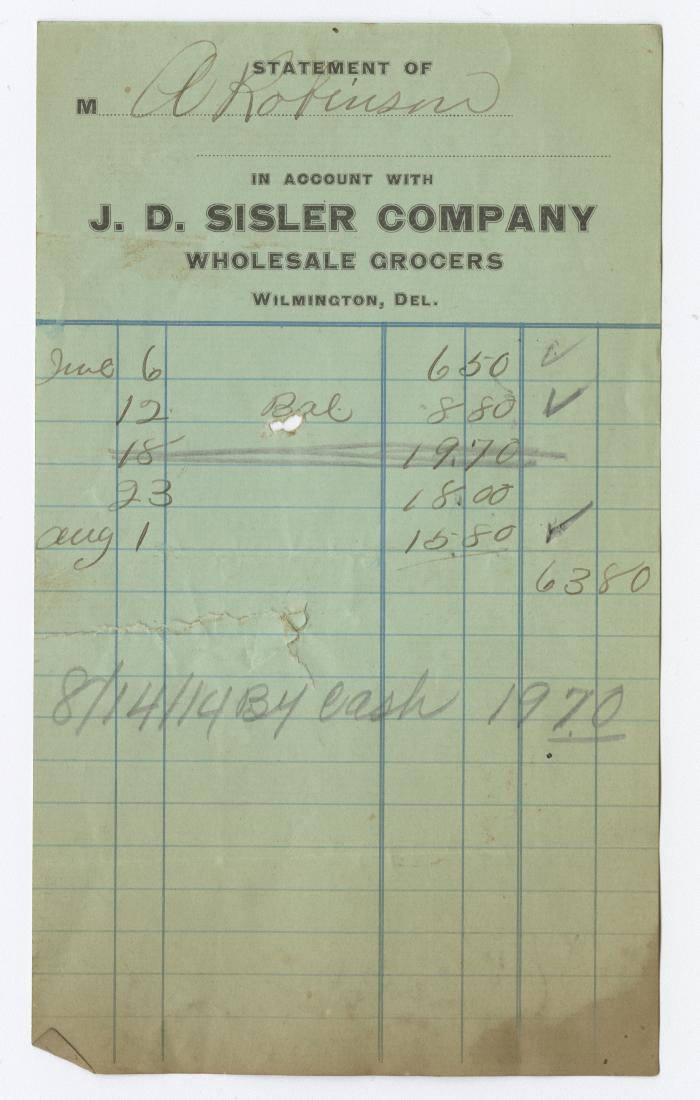 STATEMENT OF
M A Robinson
IN ACCOUNT WITH
J. D. SISLER COMPANY
WHOLESALE GROCERS
WILMINGTON, DEL.
June 6 6 50 ✓
12 Bal 8 80 ✓
18 19.70
23 18.00
Aug 1 15.80 ✓
63 80
8/14/14 By Cash 19 70